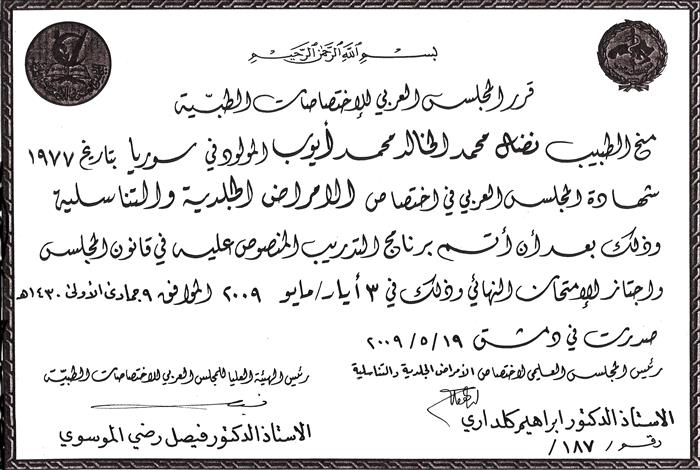 بسم الله الرحمن الرحيم
قرر المجلس العربي للإختصاصات الطبّية
منح الطبيب نضال محمد الخالد محمد أيوب المولود في سوريا بتاريخ ١٩٧٧
شهادة المجلس العربي في اختصاص الامراض الجلدية والتناسلية
وذلك بعد أن أتم برنامج التدريب المنصوص عليه في قانون المجلس
واجتاز الإمتحان النهائي وذلك في ٣ أيار/مايو ٢٠٠٩ الموافق ٩ جمادى الأولى ١٤٣٠هـ
صدرت في دمشق ٢٠٠٩/٥/١٩
رئيس المجلس العلمي لاختصاص الأمراض الجلدية والتناسلية
رئيس الهيئة العليا للمجلس العربي للاختصاصات الطبيّة
الاستاذ الدكتور ابراهيم كلداري
الاستاذ الدكتور فيصل رضي الموسوي
رقم / ١٨٧ /